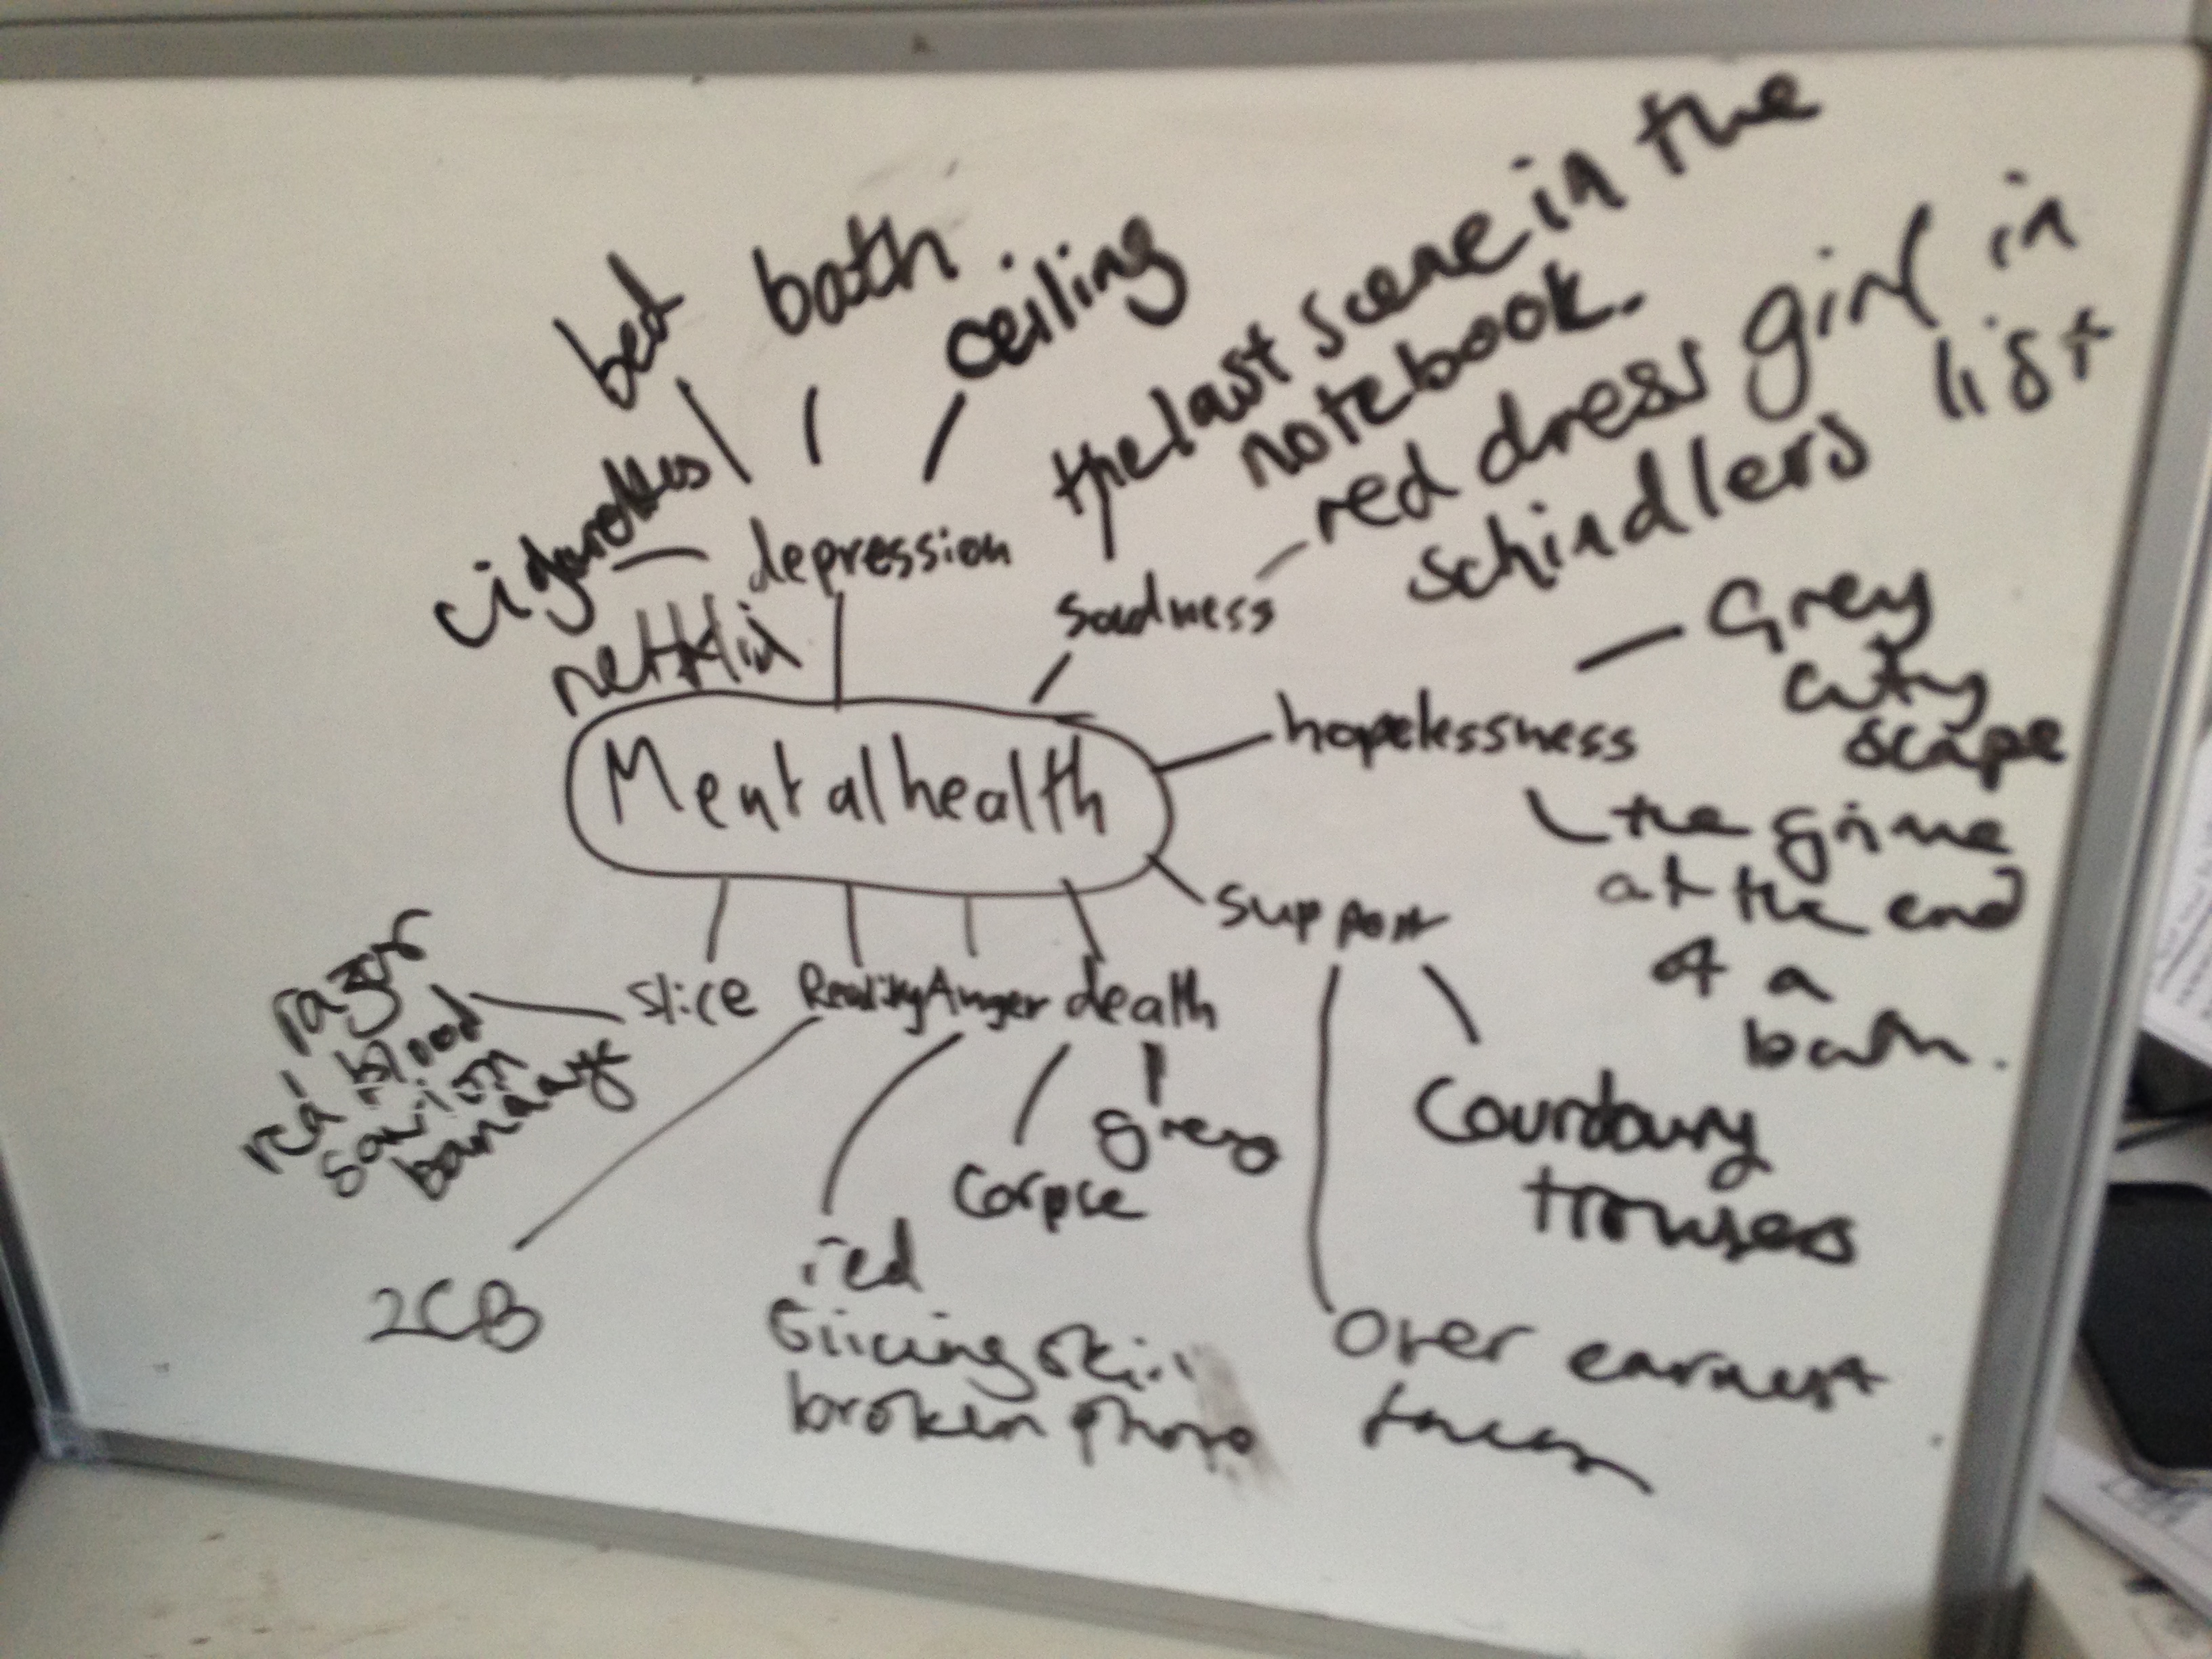 bed
bath
ceiling
cigarettes
depression
the last scene in the
notebook.
sadness
red dress girl in
schindlers list
Mental health
hopelessness
Grey
city
scape
the grime
at the end
of a
bath.
support
Courdoury
trousers
over earnest
faces
death
grey
corpse
Anger
red
slicing skin
broken phone
Reality
2CB
slice
razor
red blood
savlon
bandage